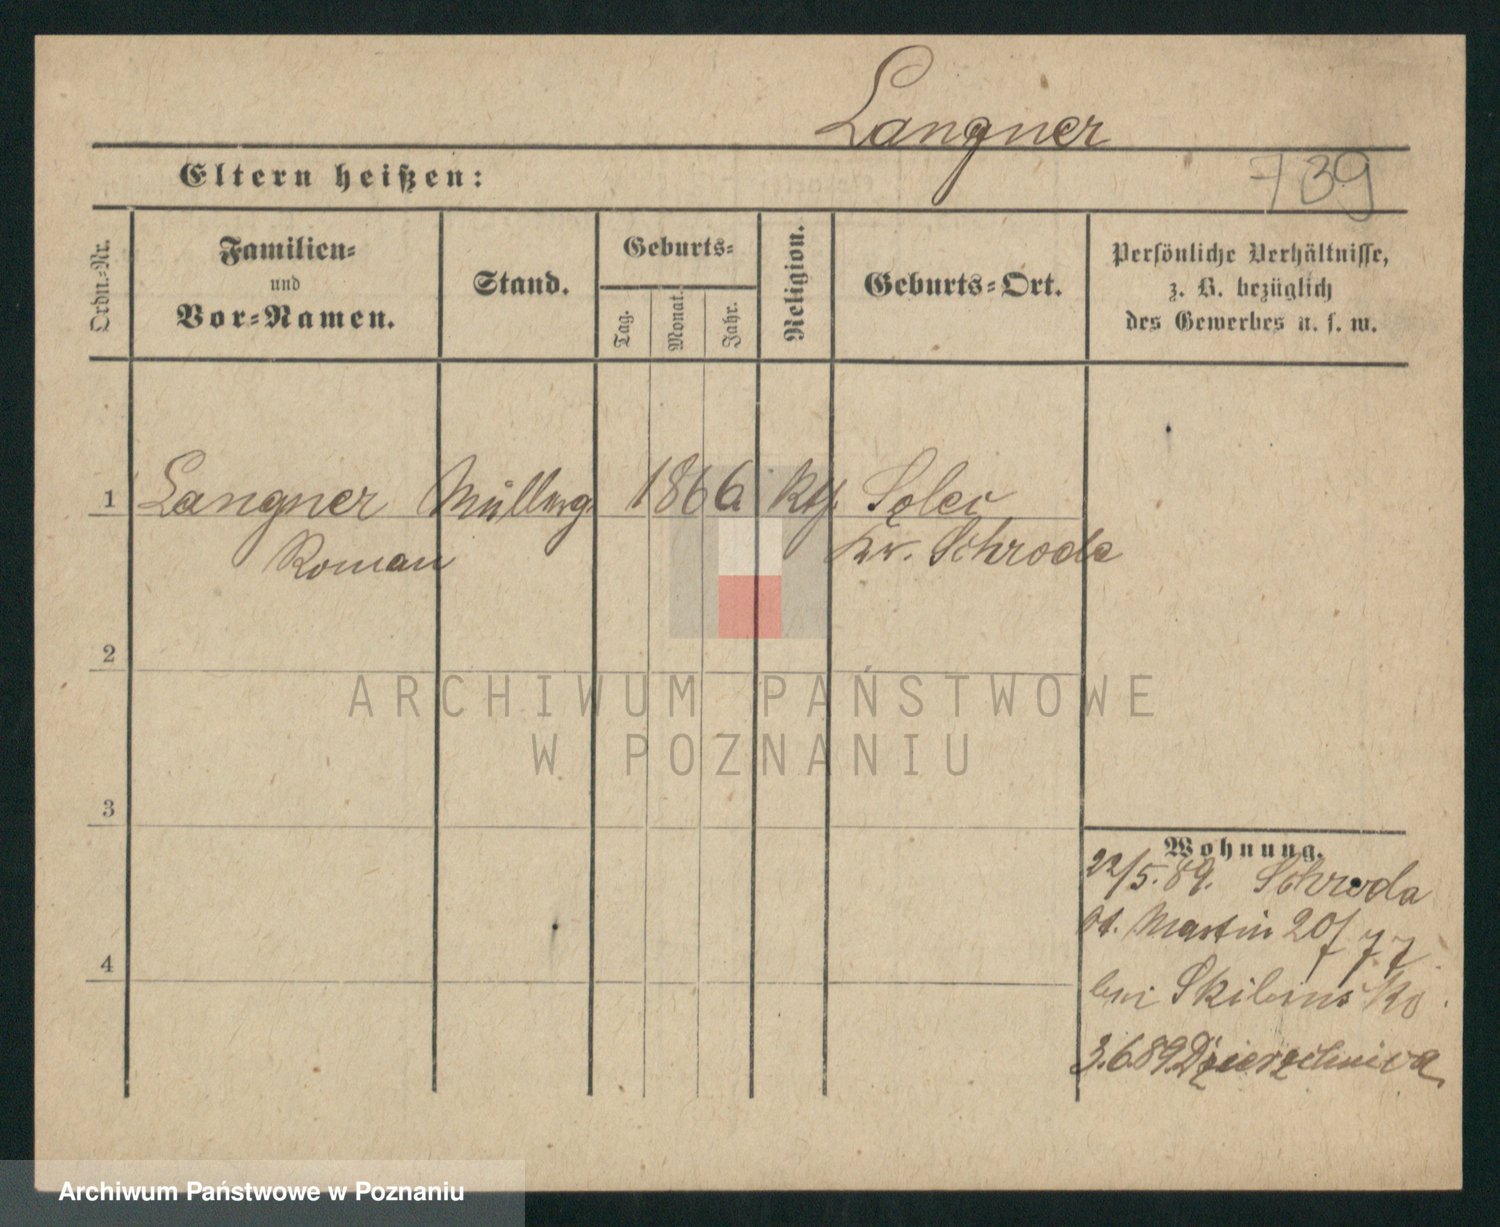 Langner
739
Eltern heißen:
Ordn.-Nr.
Familien-
und
Vor-Namen.
Stand.
Geburts-
Tag.
Monat.
Jahr.
Religion.
Geburts-Ort.
Persönliche Verhältnisse,
z. B. bezüglich
des Gewerbes u. s. w.
1 Langner Müllerg. 1866 kth. Solec
Roman Kr. Schroda
2
3
4
Wohnung.
22/5.89. Schroda
St. Martin 20/
bei Skibinski
3.6.89.
ARCHIWUM PAŃSTWOWE
W POZNANIU
Archiwum Państwowe w Poznaniu